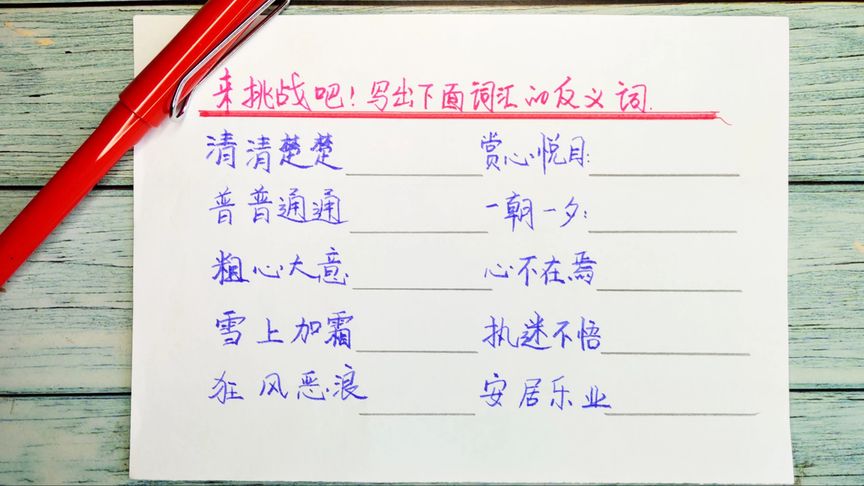 来挑战吧！写出下面词汇的反义词.
清清楚楚________ 赏心悦目:________
普普通通________ 一朝一夕:________
粗心大意________ 心不在焉________
雪上加霜________ 执迷不悟________
狂风恶浪________ 安居乐业________